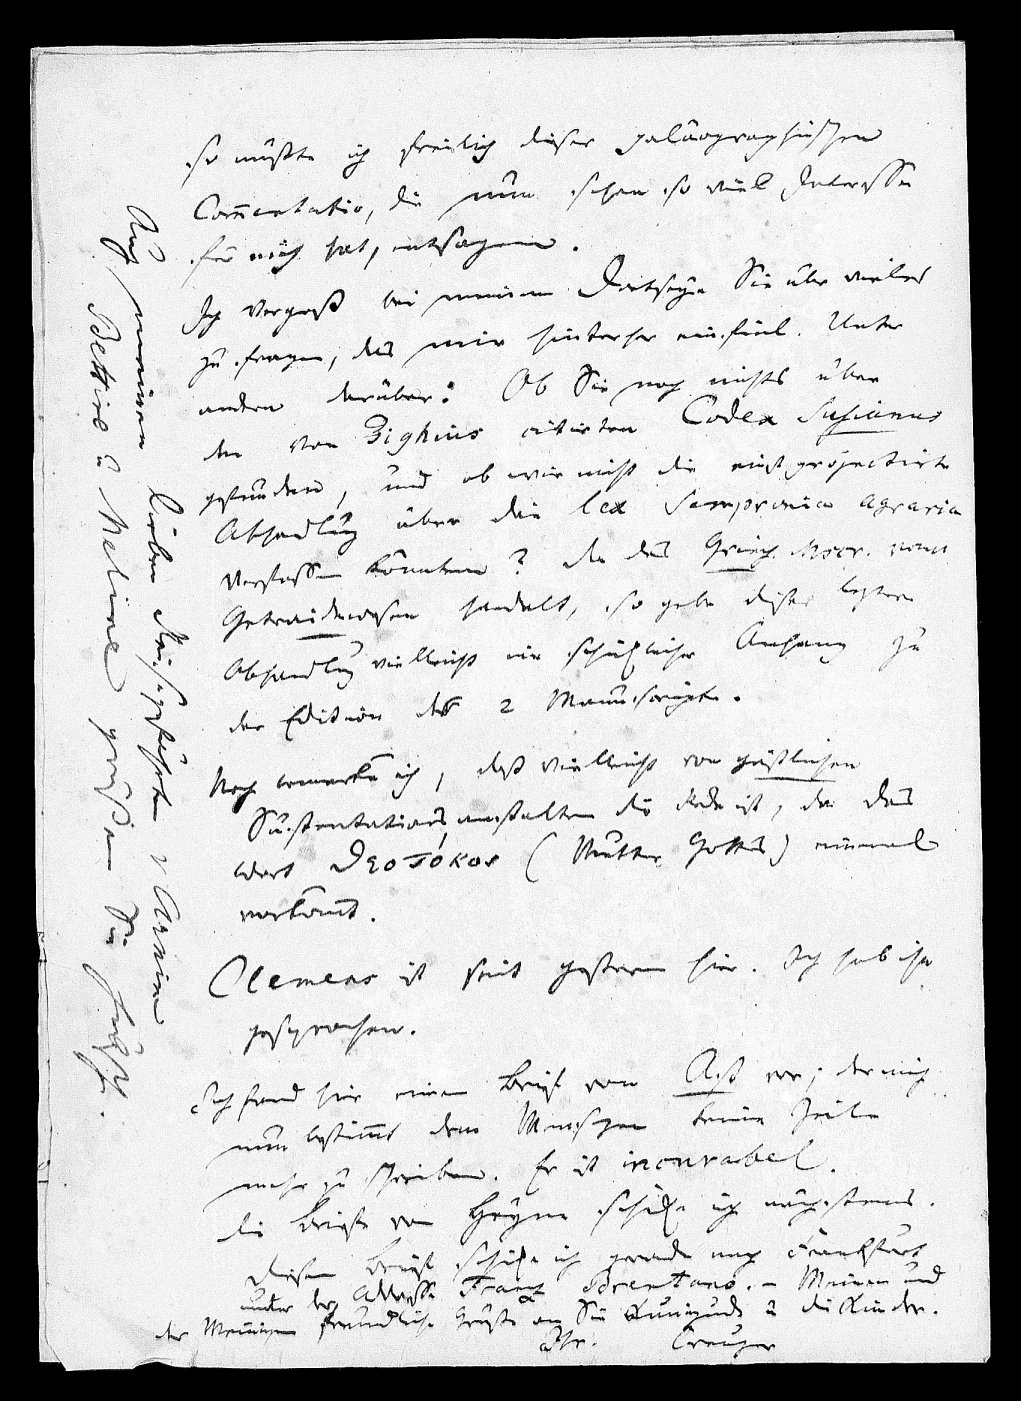 so müßte ich freilich dieser paläographischen
Com̄entatio, die nun schon so viel Interesse
für mich hat, entsagen.
Ich vergaß bei meinem Dortseyn Sie über vieles
zu fragen, das mir hinterher einfiel. Unter
andern darüber: Ob Sie noch nichts über
den von Pighius citirten Codex Susianus
gefunden, und ob wir nicht die einst projectirte
Abhandlung über die lex Sempronia agraria
verfassen könnten? da das Griech. Mscr. vom
Getraidewesen handelt, so gebe diese letztere
Abhandlung vielleicht ein schicklicher Anhang zu
der Edition des 2 Manuscripts.
Noch bemerke ich, daß vielleicht von geistlichen
Sustentationsanstalten die Rede ist, da das
Wort Θεοτόκος (Mutter Gottes) einmal
vorkom̄t.
Clemens ist seit gestern hier. Ich hab ihn
gesprochen.
Ich fand hier einen Brief von Ast vor, der mich
nun bestim̄t dem Menschen keine Zeile
mehr zu schreiben. Er ist incurabel.
Die Briefe von Heyne schicke ich nächstens.
Diesen Brief schicke ich gerade nach Frankfurt
unter der Adresse Franz Brentano. – Meinen und
der Meinigen freundliche Grüße an Sie Kunigunde u die Kinder.
Ihr. Creuzer
Auch meinen lieben Reisegefährten v Arnim
Bettine u Meline grüßen Sie